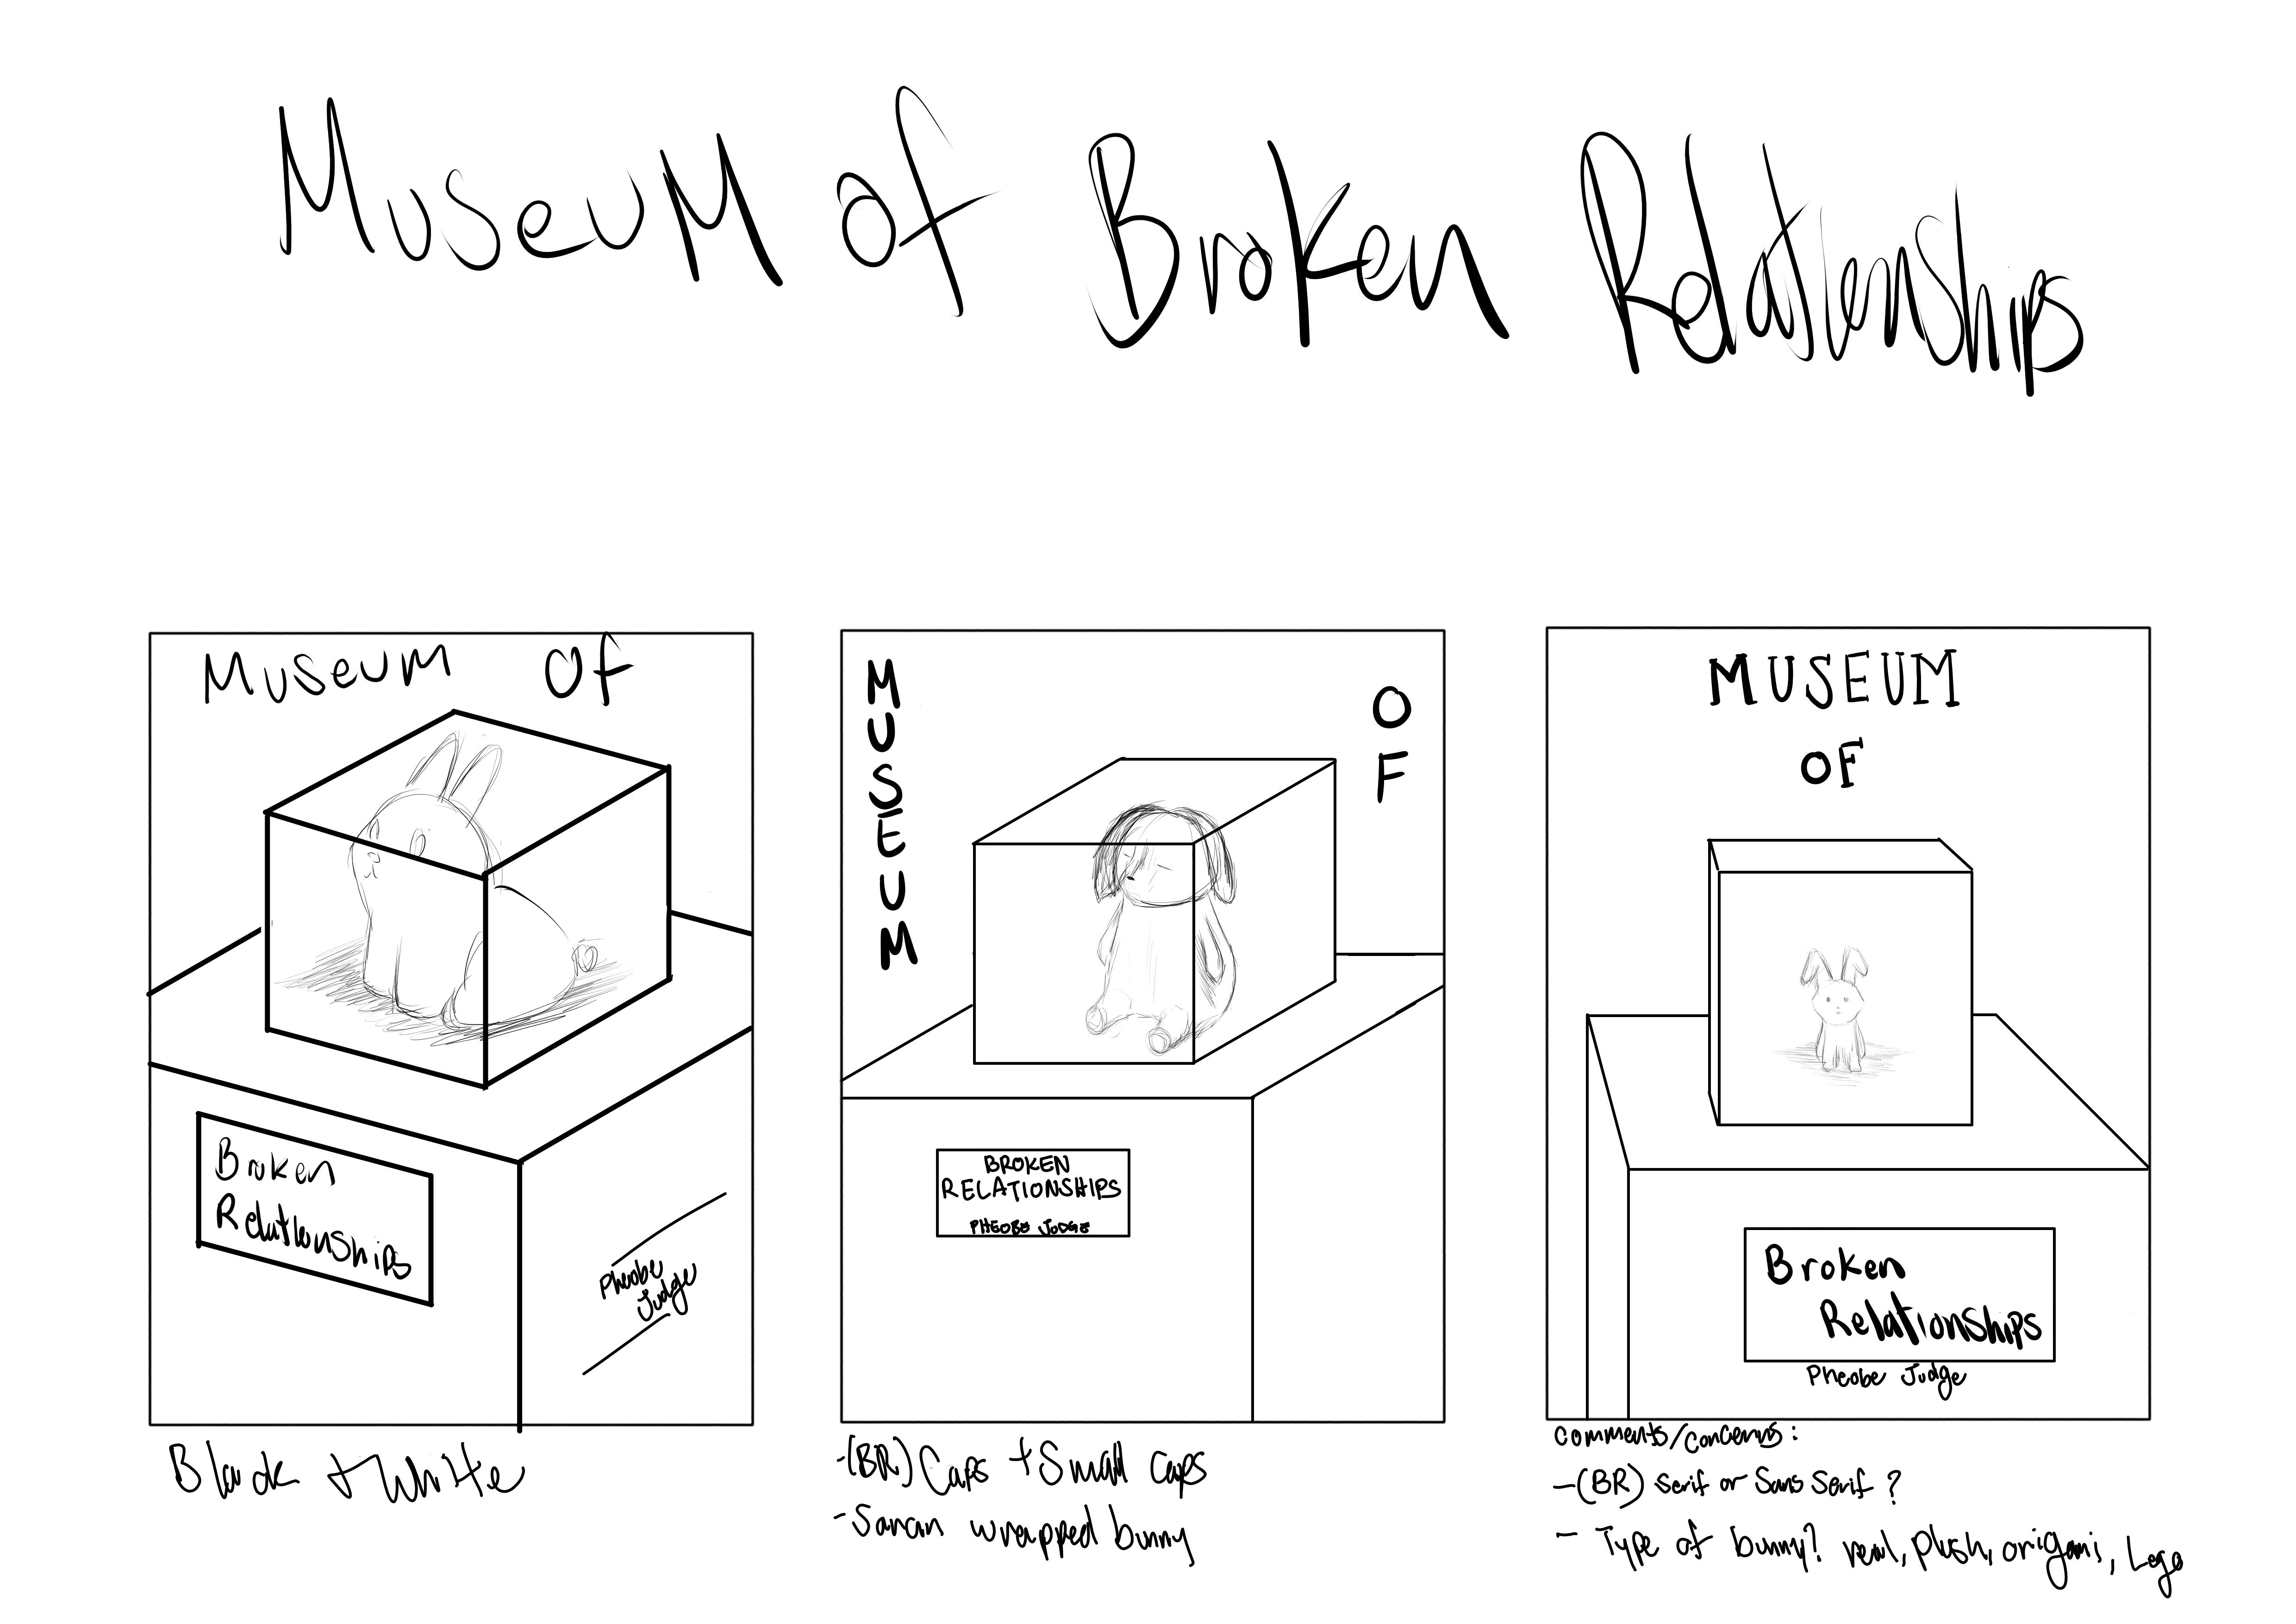 Museum of Broken Relationships
Museum of
Broken
Relationships
Pheobe
Judge
Black + White
MUSEUM
OF
BROKEN
RELATIONSHIPS
PHEOBE JUDGE
-(BR) Caps + Small Caps
-Saran wrapped bunny
MUSEUM
OF
Broken
Relationships
Pheobe Judge
comments/concerns:
-(BR) serif or Sans Serif?
- Type of bunny? real, plush, origami, Lego